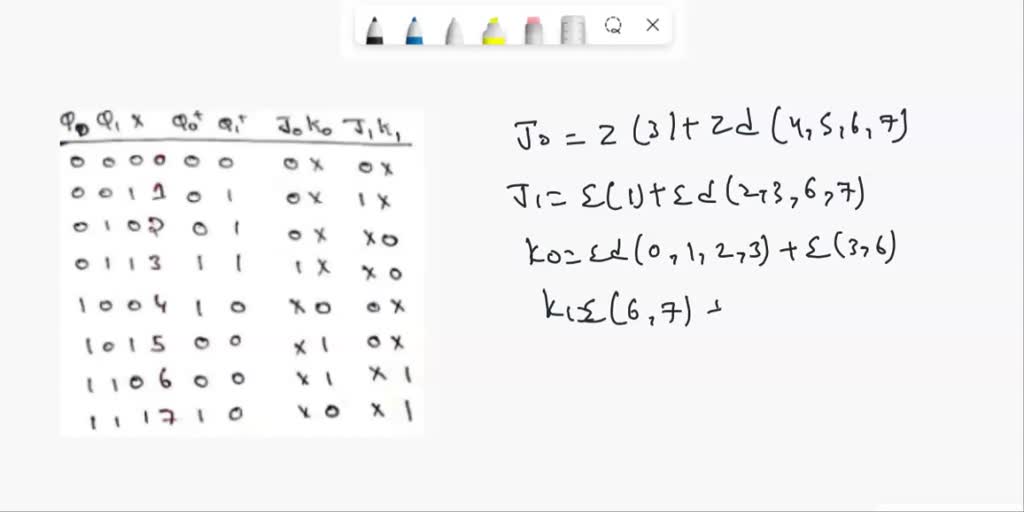 Q0 Q1 x Q0+ Q1+ J0 K0 J1 K1
0 0 0 0 0 0 0 x 0 x
0 0 1 1 0 1 0 x 1 x
0 1 0 2 0 1 0 x x 0
0 1 1 3 1 1 1 x x 0
1 0 0 4 1 0 x 0 0 x
1 0 1 5 0 0 x 1 0 x
1 1 0 6 0 0 x 1 x 1
1 1 1 7 1 0 x 0 x 1
J0 = Σ (3) + Σd (4, 5, 6, 7)
J1 = Σ(1) + Σd (2, 3, 6, 7)
K0 = Σd (0, 1, 2, 3) + Σ (3, 6)
K1 = Σ (6, 7) +